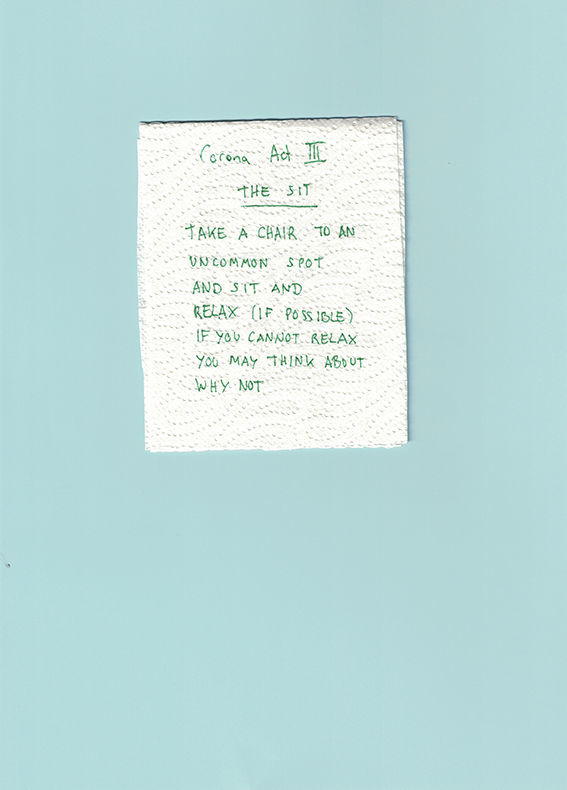 Corona Act III
THE SIT
TAKE A CHAIR TO AN
UNCOMMON SPOT
AND SIT AND
RELAX (IF POSSIBLE)
IF YOU CANNOT RELAX
YOU MAY THINK ABOUT
WHY NOT